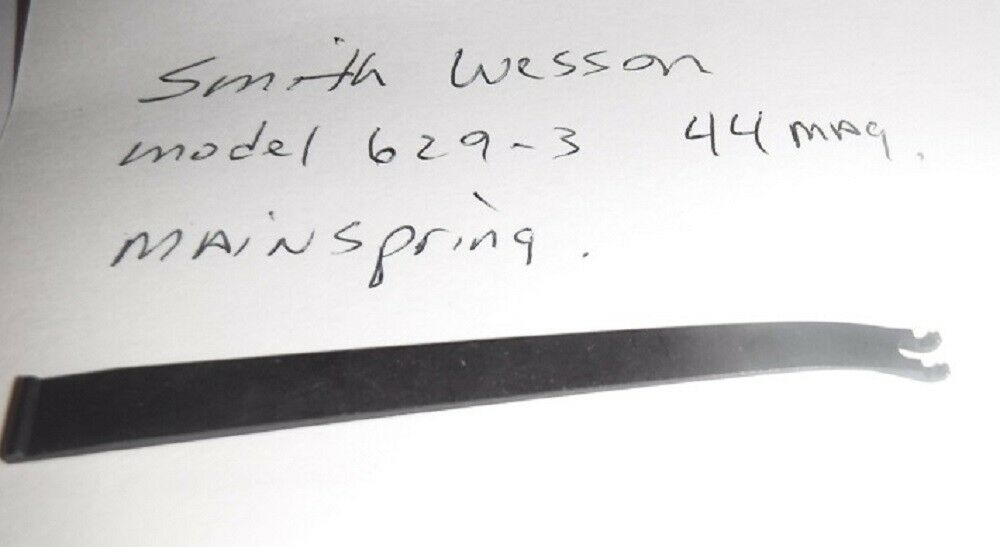 Smith Wesson
model 629-3 44 mag.
mainspring.